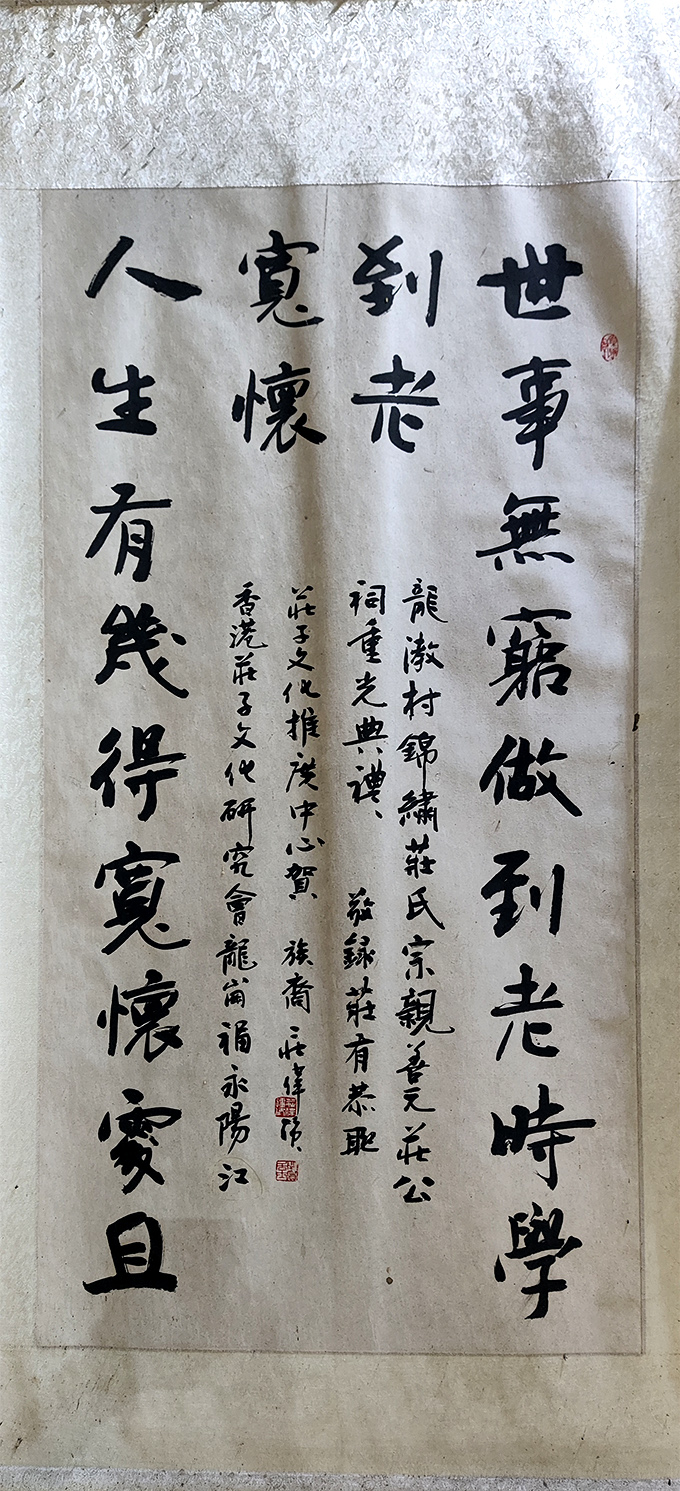 世事無窮做到老時學
到老
龍漖村錦繡莊氏宗親善元莊公
祠重光典禮、敬録莊有恭聯
人生有幾得寬懷處且
寬懷
香港莊子文化研究會龍崗福永陽江
莊子文化推廣中心賀 族裔 莊偉